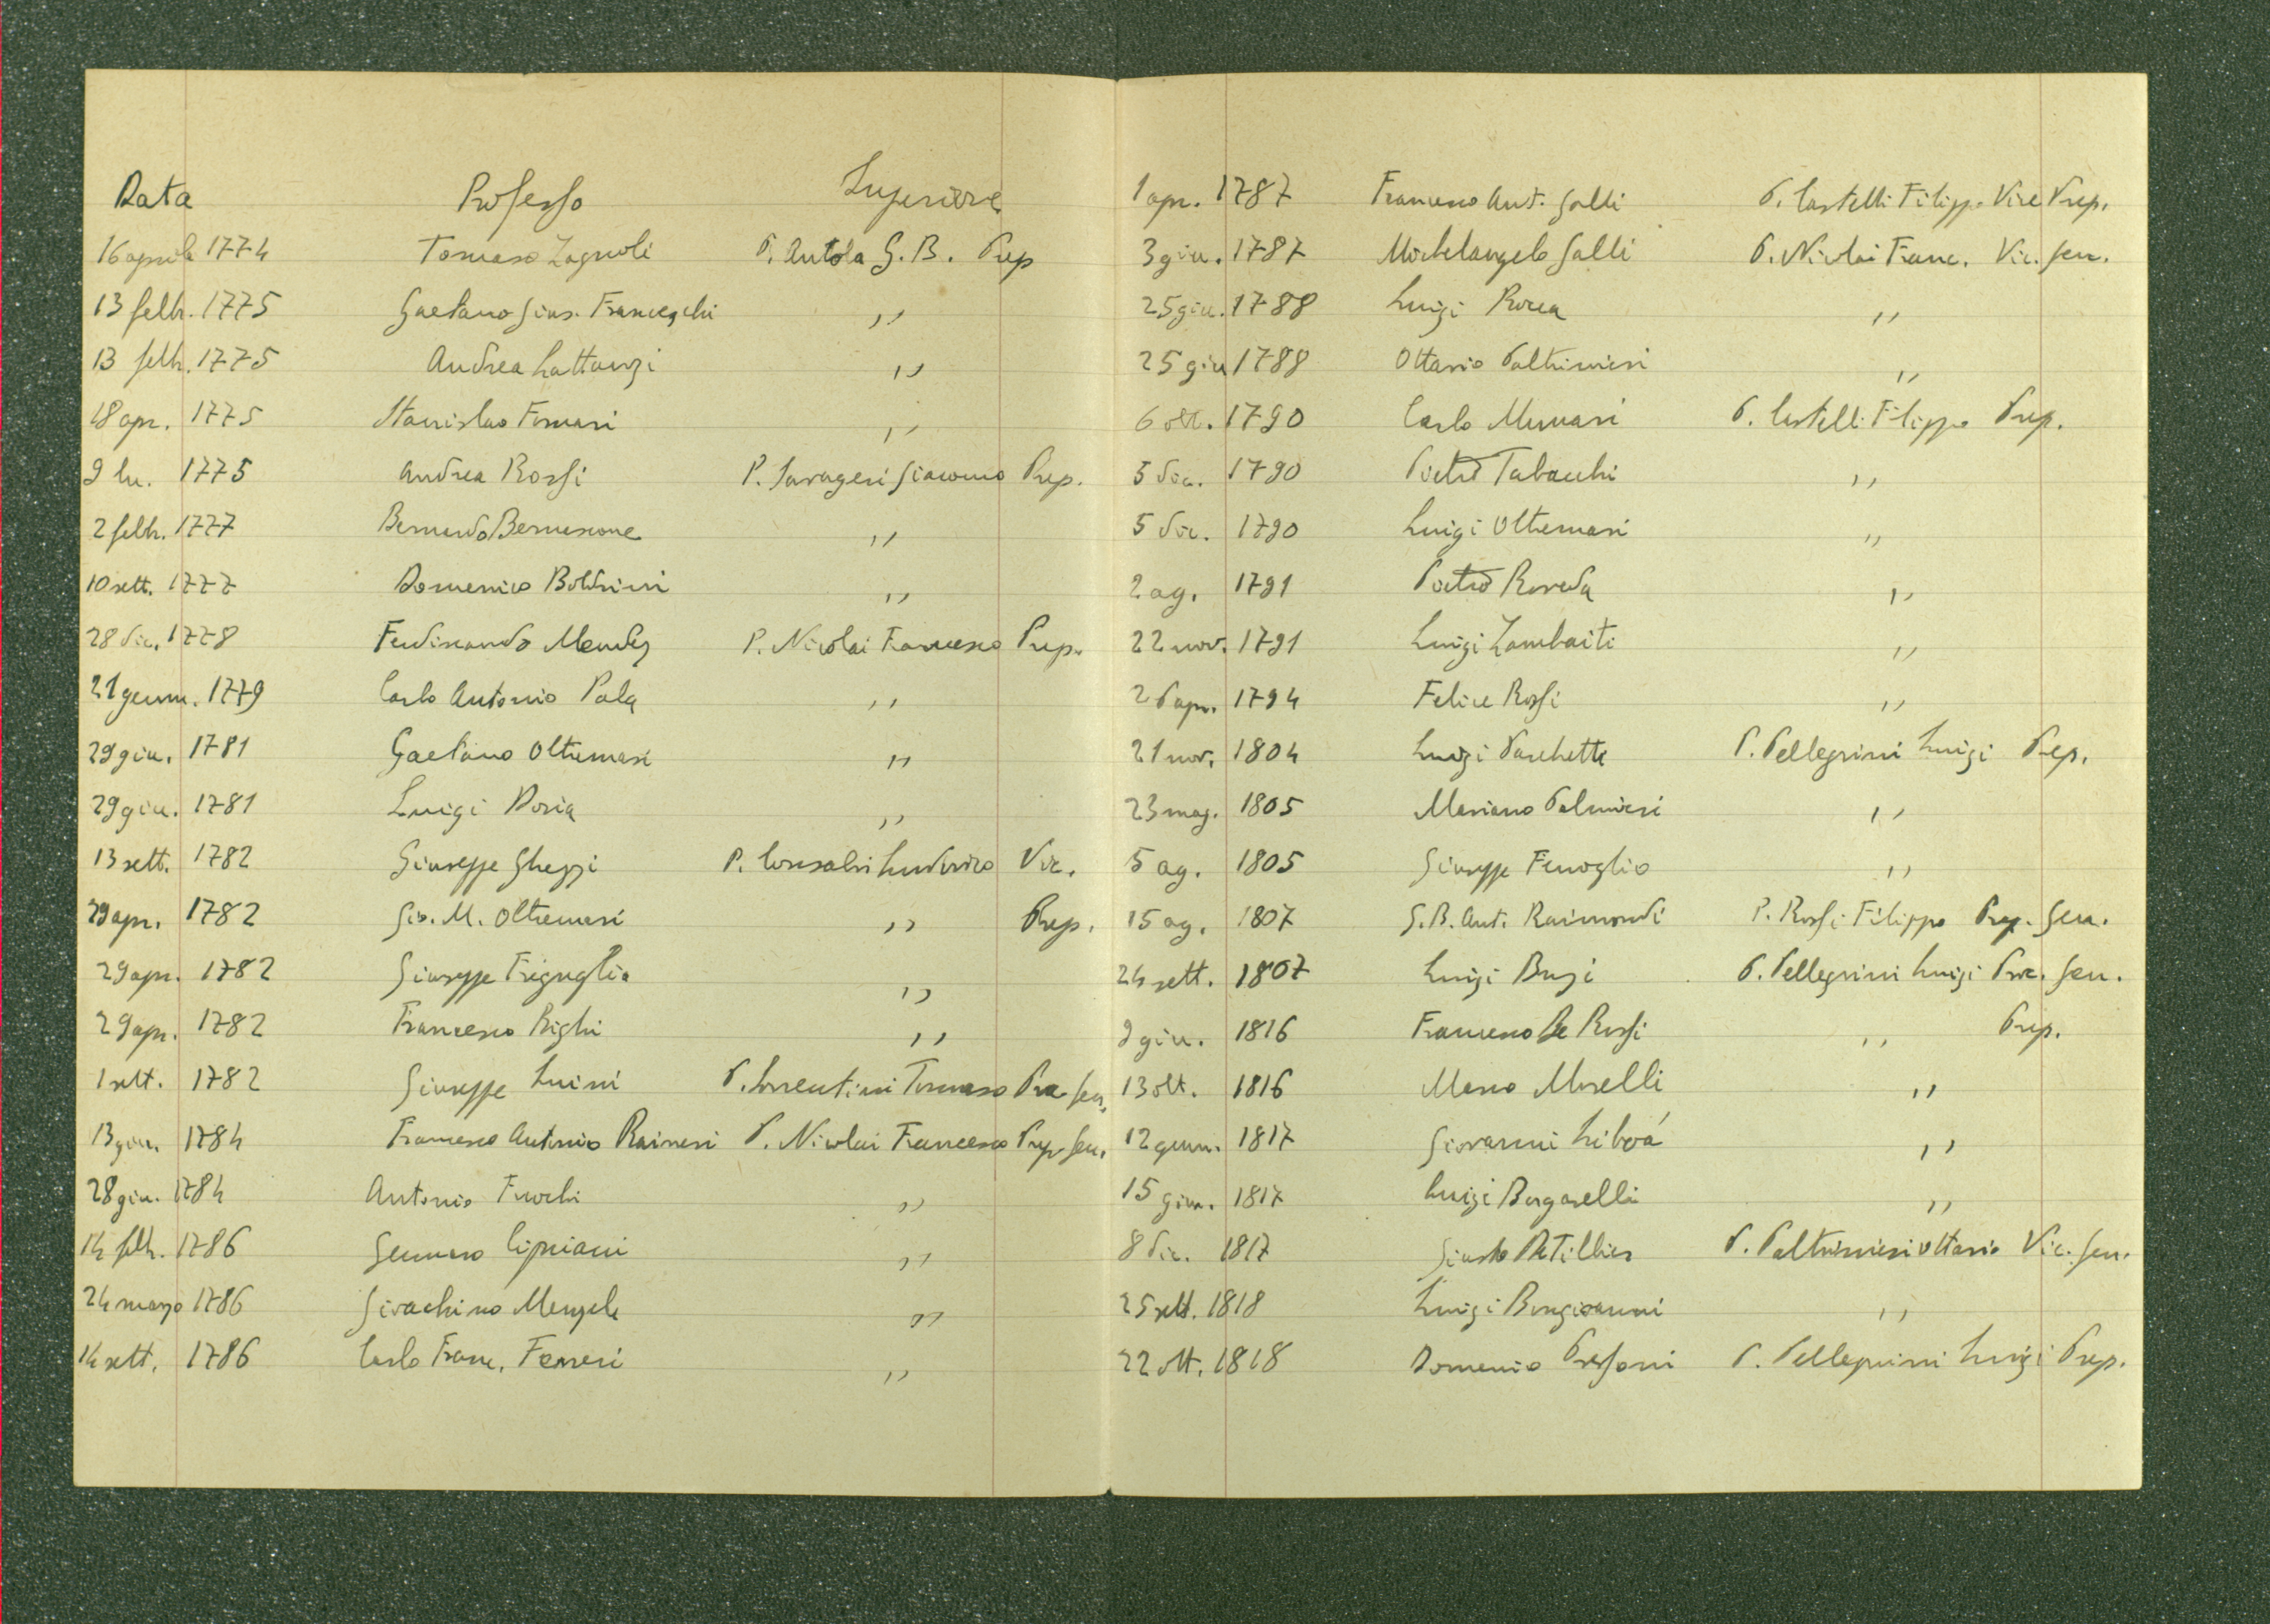 Data Professo Superiore
16 aprile 1774 Tomaso Zagnoli P. Autola G. B. Prep
13 febb. 1775 Gaetano Gius. Franceschi ,,
13 febb. 1775 Andrea Lattanzi ,,
18 apr. 1775 Stanislao Fornari ,,
9 lu. 1775 Andrea Rossi P. Savageri Giacomo Prep.
2 febb. 1777 Bernardo ,,
10 sett. 1777 Domenico Boldrini ,,
28 dic. 1778 Ferdinando Mendez P. Nicolai Francesco Prep.
21 genn. 1779 Carlo Antonio Pala ,,
29 giu. 1781 Gaetano Oltremari ,,
29 giu. 1781 Luigi Doria ,,
13 sett. 1782 Giuseppe Ghezzi P. Consalvi Ludovico Vic.
29 apr. 1782 Gio. M. Oltremari ,, Prep.
29 apr. 1782 Giuseppe Friguglia ,,
29 apr. 1782 Francesco Righi ,,
1 sett. 1782 Giuseppe Luini P. Sorrentini Tomaso Gen.
13 giu. 1784 Francesco Antonio Raineri P. Nicolai Francesco Prep. Gen.
28 giu. 1784 Antonio ,,
14 febb. 1786 Gennaro Cipriani ,,
24 marzo 1786 Gioachino ,,
14 sett. 1786 Carlo Franc. Ferreri ,,
1 apr. 1787 Francesco Ant. Galli P. Castelli Filippo Vice Prep.
3 giu. 1787 Michelangelo Galli P. Nicolai Franc. Vic. Gen.
25 giu. 1788 Luigi Rocca ,,
25 giu 1788 Ottavio Paltrinieri ,,
6 ott. 1790 Carlo Munari P. Castelli Filippo Prep.
5 dic. 1790 Pietro Tabacchi ,,
5 dic. 1790 Luigi Oltremari ,,
2 ag. 1791 Pietro Roveda ,,
22 nov. 1791 Luigi Zambaiti ,,
26 apr. 1794 Felice Rossi ,,
21 nov. 1804 Luigi Paschetta P. Pellegrini Luigi Prep.
23 mag. 1805 Mariano Palmieri ,,
5 ag. 1805 Giuseppe Fenoglio ,,
15 ag. 1807 G. B. Ant. Raimondi P. Rossi Filippo Prep. Gen.
24 sett. 1807 Luigi Buzi P. Pellegrini Luigi Proc. Gen.
9 giu. 1816 Francesco De Rossi ,, Prep.
13 ott. 1816 Marco Morelli ,,
12 genn. 1817 Giovanni Liboá ,,
15 giu. 1817 Luigi Borgarelli ,,
8 dic. 1817 Giusto DeTillier P. Paltrinieri Ottavio Vic. Gen.
25 sett. 1818 Luigi Bongioanni ,,
22 ott. 1818 Domenico Pressoni P. Pellegrini Luigi Prep.